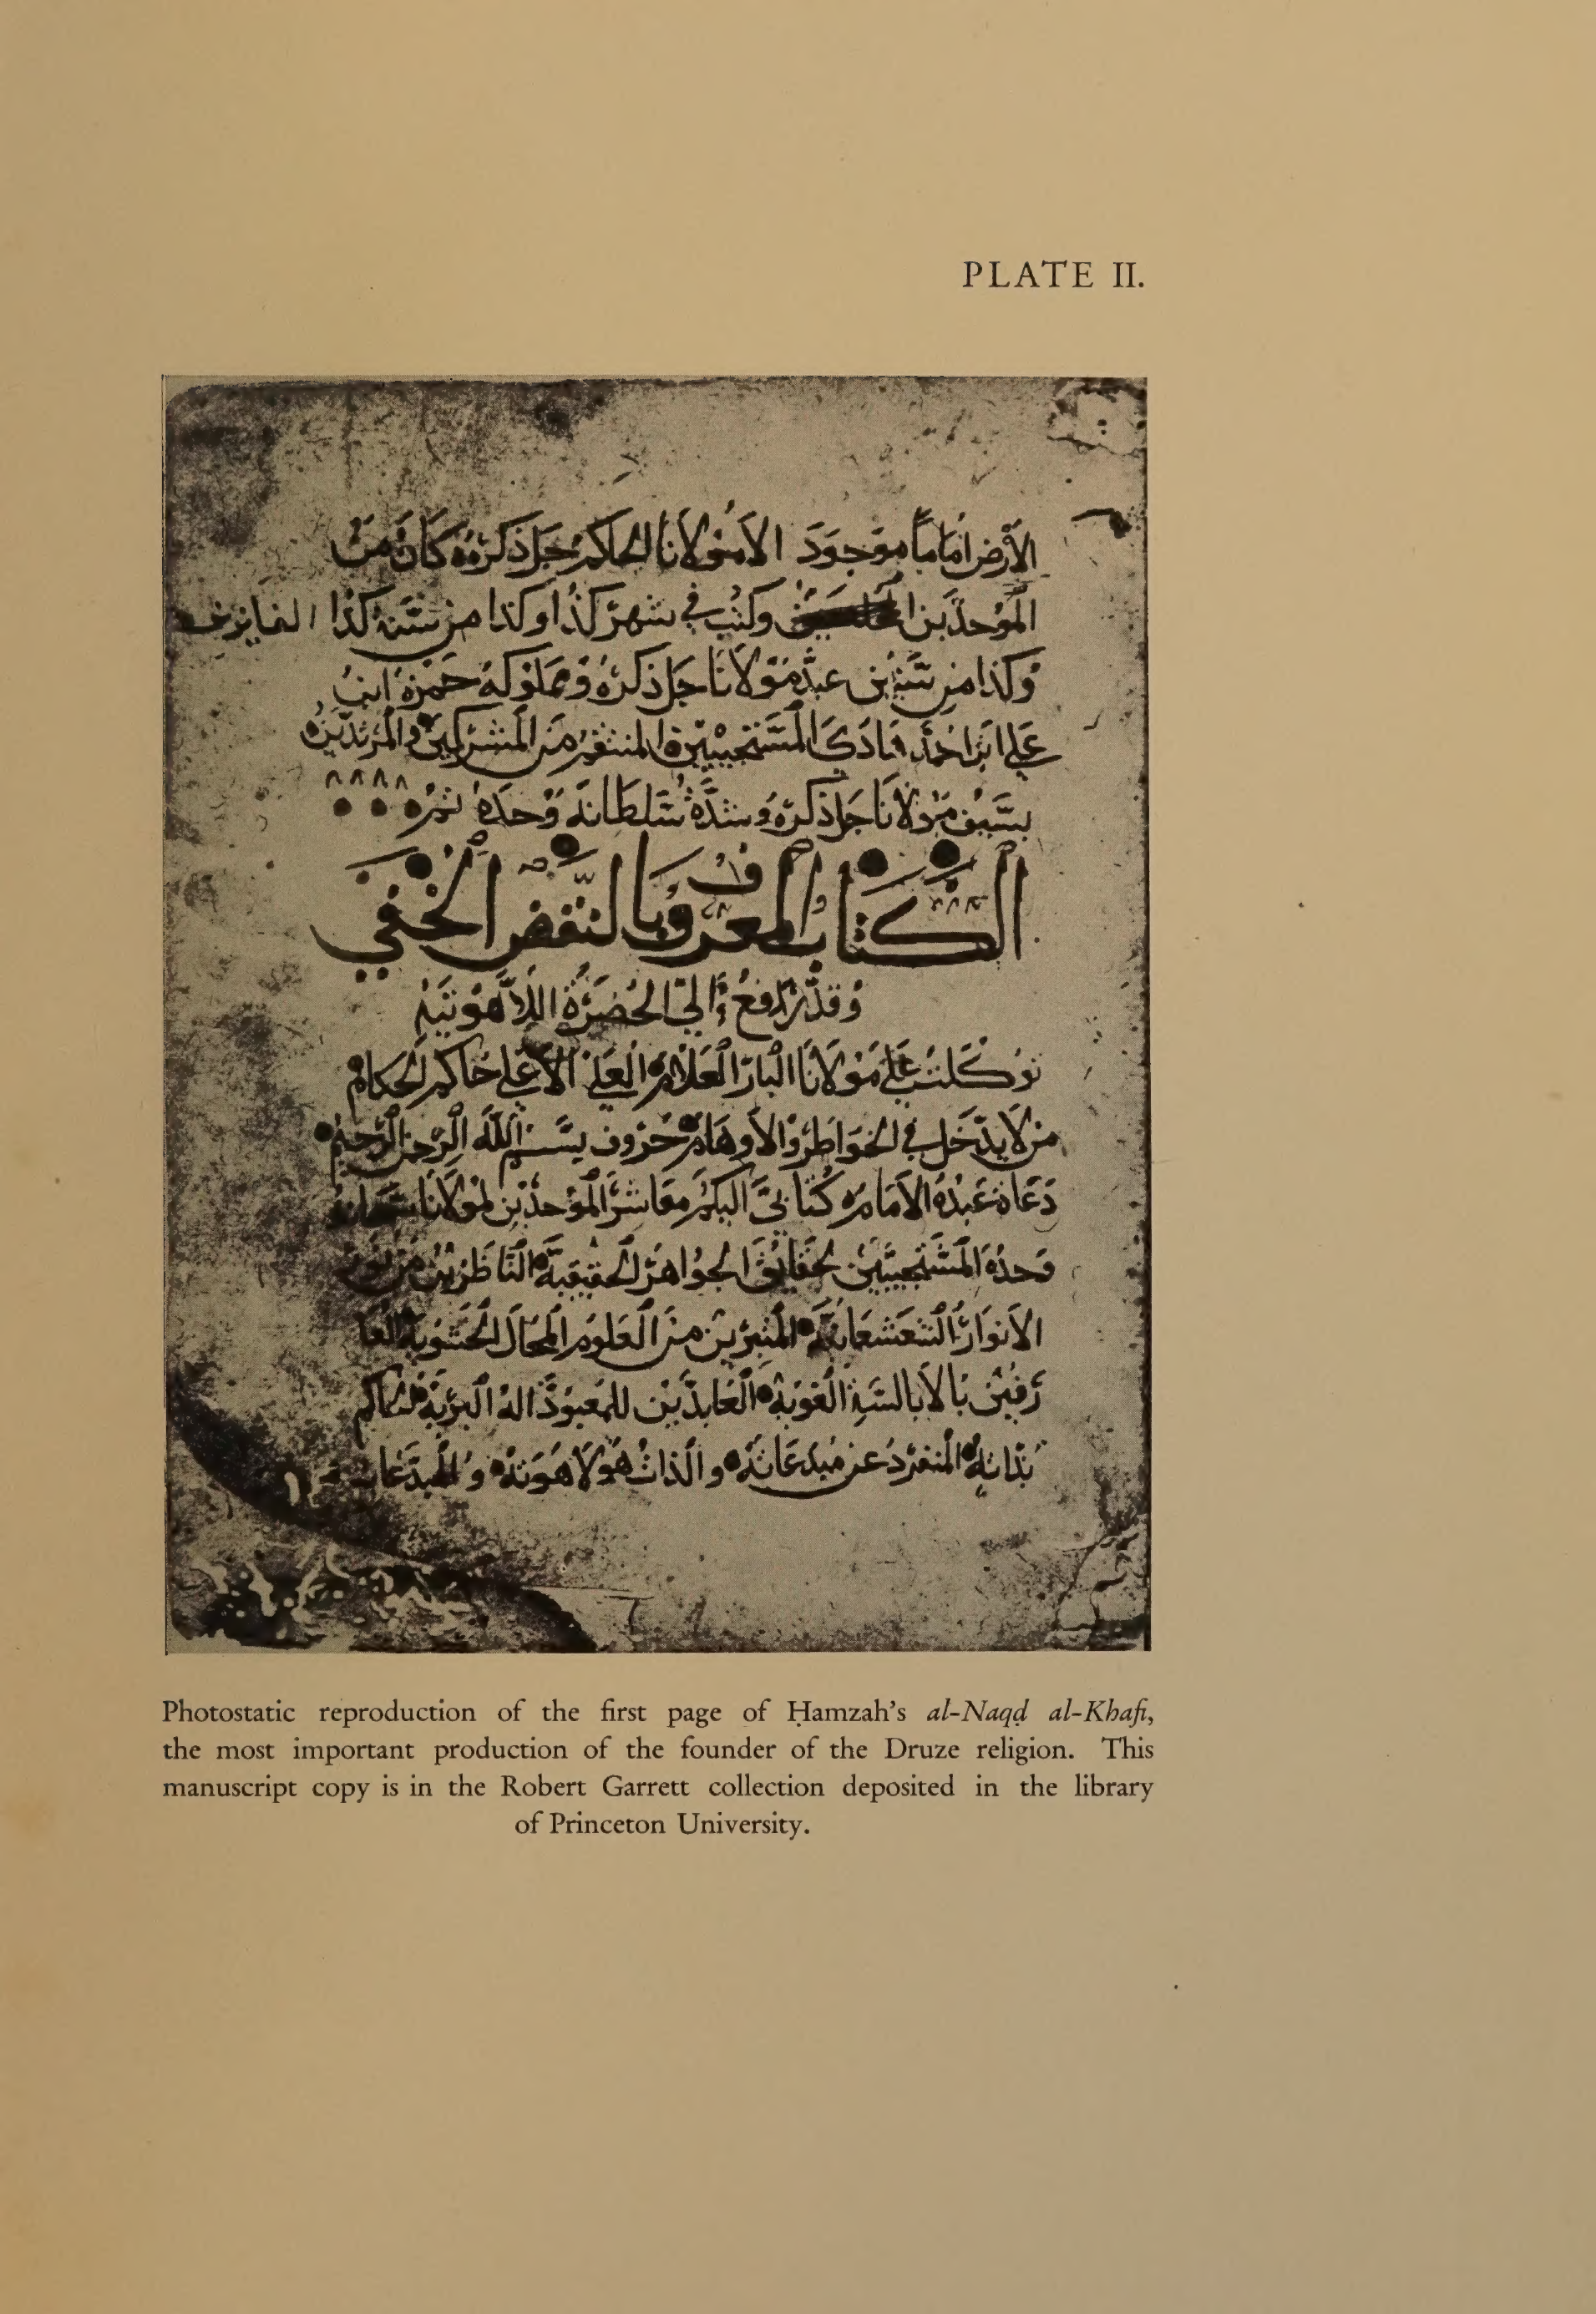 PLATE II.
الأرض اماماً موجود الا مولانا الحاكم جل ذكره كان من
الموحدين وكتب في شهر كذا وكذا من سنة كذا الفايزين
وكذا من سنين عبد مولانا جل ذكره ومملوكه حمزه ابن
علي ابن احمد هادي المستجيبين المنتقم من المشركين والمرتدين
بسيف مولانا جل ذكره وشدة سلطانه وحده تم
الكتاب المعروف بالنقض الخفي
وقد رفع الي الحضرة اللاهوتيه
توكلت علي مولانا البار العلام العلي الأعلي حاكم الحكام
من لا يدخل في الخواطر والأوهام حروف بسم الله الرحمن الرحيم
دعاة عبده الامام كتابي اليكم معاشر الموحدين لمولانا سبحانه
وحده المستجيبين لحقايق الجواهر الحقيقية الناظرين من نور
الانوار الشعشعانية المتبريين من العلوم المحال الحشوية العا
رفين بالابالسة الغوية العابدين للمعبود اله البرية الحاكم
بذاته المنفرد عن مبدعاته والذات هو لاهوته والمبدعات
Photostatic reproduction of the first page of Ḥamzah's al-Naqḍ al-Khafi,
the most important production of the founder of the Druze religion. This
manuscript copy is in the Robert Garrett collection deposited in the library
of Princeton University.